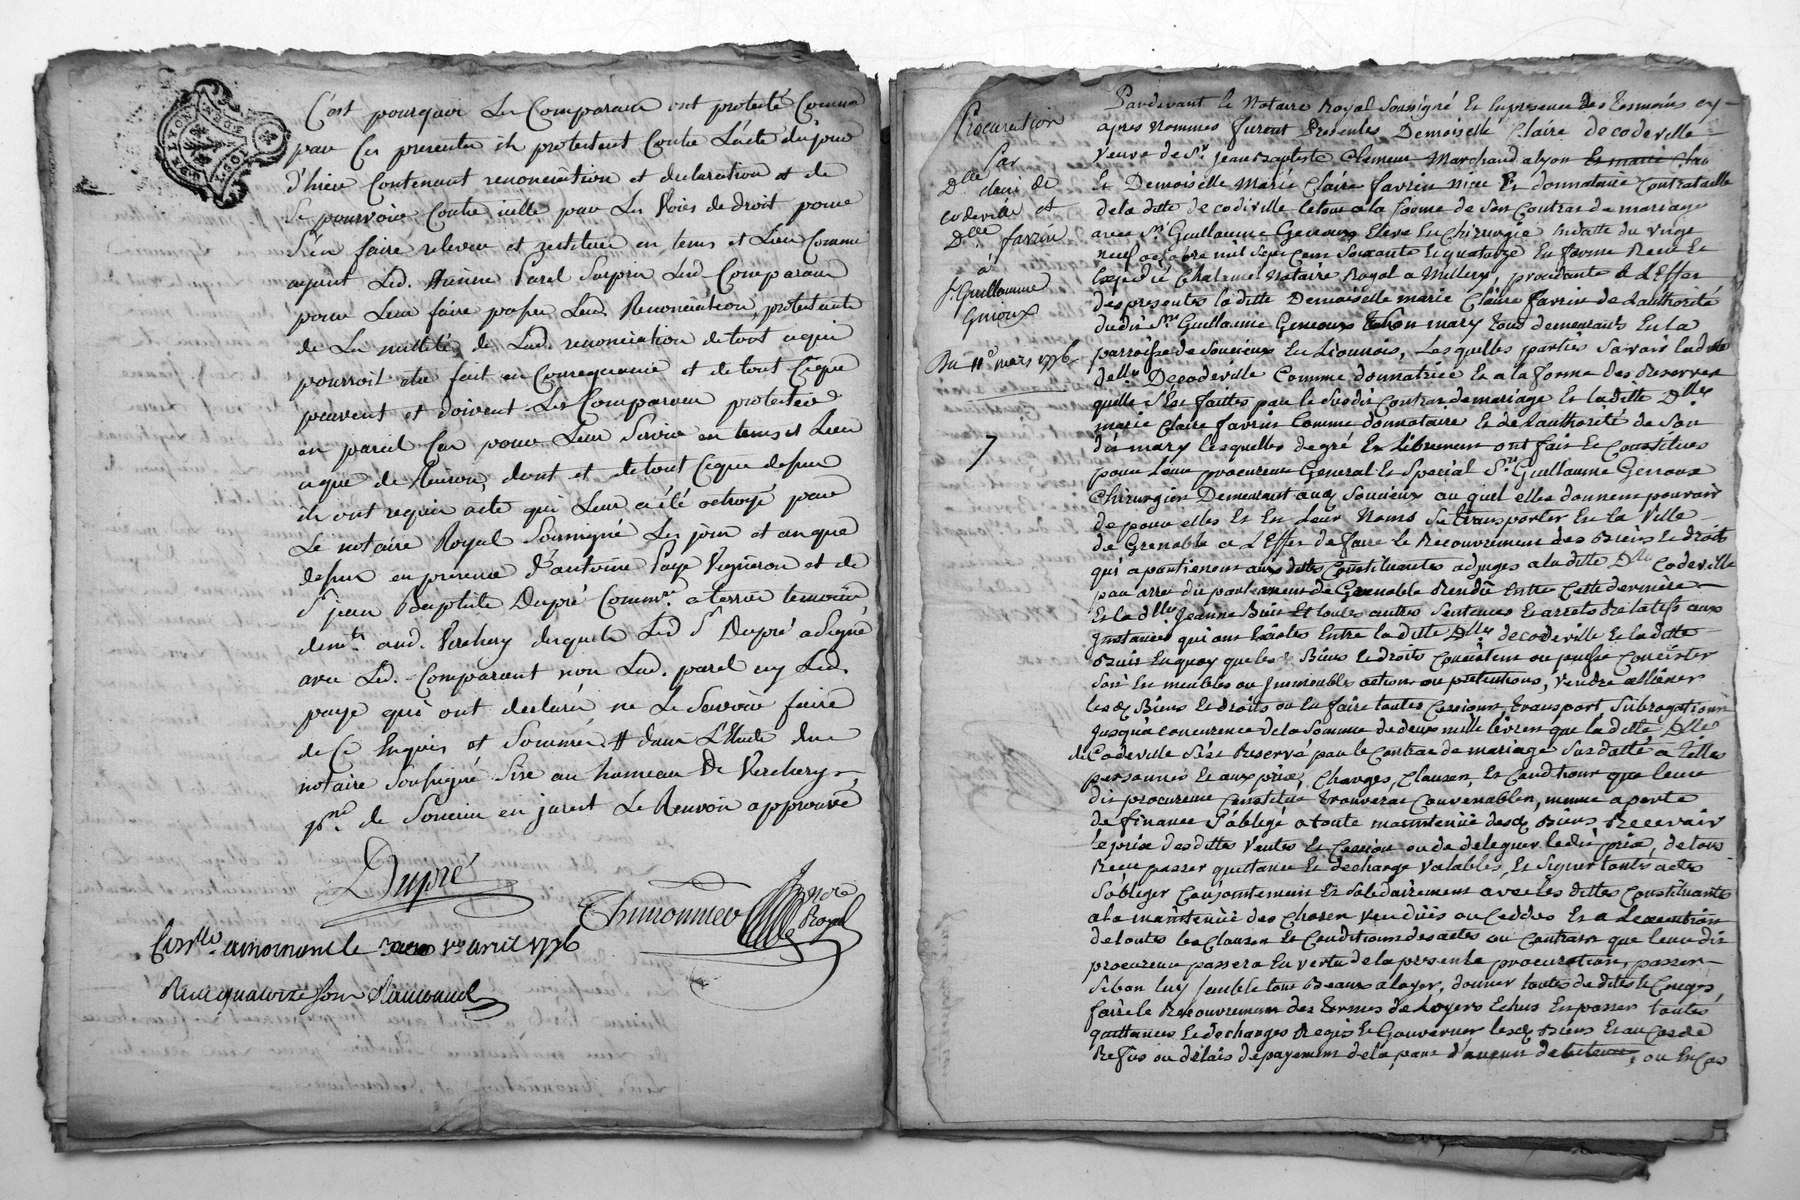 C'est pourquoi Les Comparans ont protesté Comme
par Ces presentes ils protestent Contre L'acte du jour
d'hier Contenant renonciation et declaration et de
se pourvoir Contre icelle par Les Voies de droit pour
s'en faire relever et restituer en tems et Lieu Comme
ayant Led. Parel Surpris Lesd. Comparans
pour Leur faire passer Lad. Renonciation, protestants
de La nullité de Lad. renonciation de tout ce qui
pourroit etre fait en Consequence et de tout Ceque
peuvent et doivent Les Comparans protester
en pareil Cas pour Leur Servir en tems et Lieu
ceque de Raison, dont et de tout Ceque dessus
ils ont requis acte qui Leur a été octroyé par
Le notaire Royal Soussigné Les jour et an que
dessus en presence d'antoine Paye Vigneron et de
Sr jean Baptiste Dupré Commre a terrier temoins
demts. aud. Verchery desquels Led Sr Dupré a Signé
avec Led. Comparant non Lad. parel ny Led.
paye qui ont declaré ne Le Savoir faire
de Ce Enquis et Sommés # dans L'Etude du
notaire Soussigné Sise au hameau De Verchery
psse. de Soucieu en jarest Le Renvoi approuvé
Dupré
Thimonnier
nore
Royal
Conllé. a mornant le avril 1776
Reçu quatorze sous
LYON
Procuration
Par
Dlle
claire de
codeville et
Dlle favrin
à
Sr Guillaume
Genoux
Du 11e mars 1776
7
Pardevant le Notaire Royal Soussigné Et En presence des Temoins cy-
apres Nommés furent Presentes Demoiselle Claire de codeville
veuve de Sr jean Baptiste Clement Marchand a lyon Et marie Clai
Et Demoiselle Marie Claire favrin Niece Et donnataire Contratuelle
de la ditte de codeville le tout a la forme de Son Contrat de mariage
avec Sr Guillaume Genoux Eleve En Chirurgie En datte du vingt
neuf octobre mil Sept Cent Soixante Et quatorze En forme Recu Et
Expedié Notaire Royal a Millery procedante a L'Effet
des presentes la ditte Demoiselle marie Claire favrin de Lauthorité
dudit Sr Guillaume Genoux Son mary tous demeurants En la
parroisse de Soucieux En Lionnois, Lesquelles parties Savoir ladite
delle Decodeville Comme donnatrice Et a la forme des Reserves
quelle S'Est faittes par le Susdit Contrat de mariage Et la ditte Dlle
marie Claire favrin Comme donnataire Et de Lauthorité de Son
dit mary lesquelles de gré Et Librement ont fait Et Constitués
pour Leur procureur General Et Special Sr Guillaume Genoux
Chirurgien Demeurant aud. Soucieux au quel elles donnent pouvoir
de pour elles Et En Leur Noms Se transporter En la Ville
de Grenoble a L'Effet de faire le Recouvrement des Biens Et droits
qui apartienent aux dittes Constituantes adjugés a la ditte Dlle Codeville
par arret du parlement de Grenoble Rendû Entre Cette derniere
Et la dlle jeanne Buis Et toutes autres Sentences Et arrets Relatifs aux
Instances qui ont Existés Entre la ditte Dlle de codeville Et la ditte
Buis En quoy que les Biens Et droits Consistent ou puisse Concister
Soit En meubles ou Immeubles actions ou pretentions, vendre aliéner
lesd. Biens Et droits ou En faire toutes Cessions, transport Subrogations
jusqu'a Concurence de la Somme de deux mille livres que la ditte Dlle
de Codeville S'est Reservé par le Contrat de mariage Susdatté a Telles
personnes Et aux prix, Charges, Clauses, Et Conditions que leur
dit procureur Constitué trouvera Convenables, meme a perte
de finance S'obligé a toute maintenüe desd. Biens Recevoir
le prix des dittes Ventes Et Cession ou de deleguer ledit prix, de tous
Recu passer quittance Et decharge valables, Et Signer touts actes
S'obliger Conjointement Et Solidairement avec les dittes Constituants
a la maintenüe des Choses vendües ou Ceddés Et a Lexecution
de toutes les Clauses Et Conditions des actes ou Contrats que leur dit
procureur passera En vertu de la presente procuration, passer
Si bon luy semble tous Beaux a loyer, donner toutes dedites Et Congés,
faire le Recouvrement des termes de Loyers Echus En passer toutes
quittances Et decharges Regir Et Gouverner lesd. Biens Et au Cas de
Refus ou délais de payement de la part d'aucun debiteur, ou En Cas